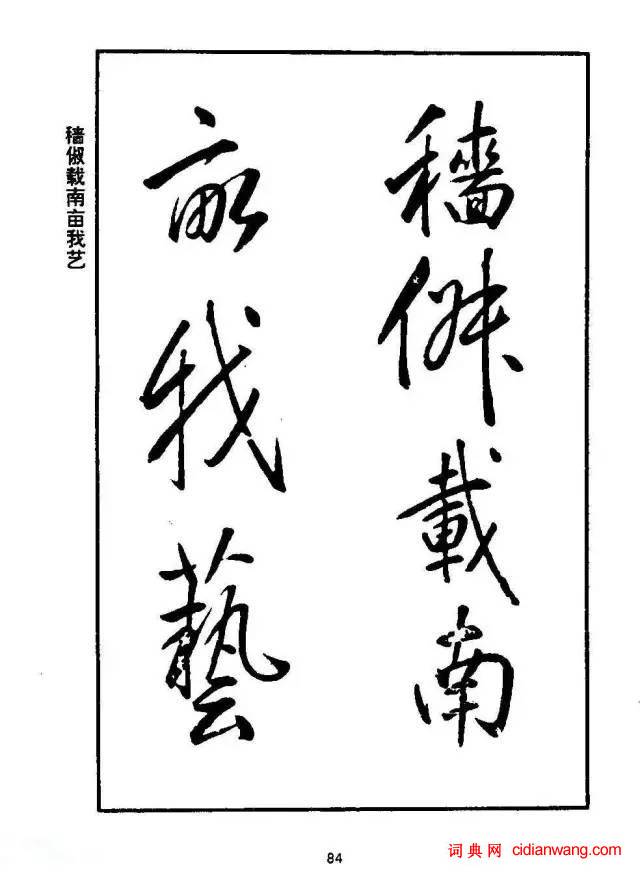 穑俶载南
亩我艺
穑俶载南亩我艺
84
词典网 cidianwang.com